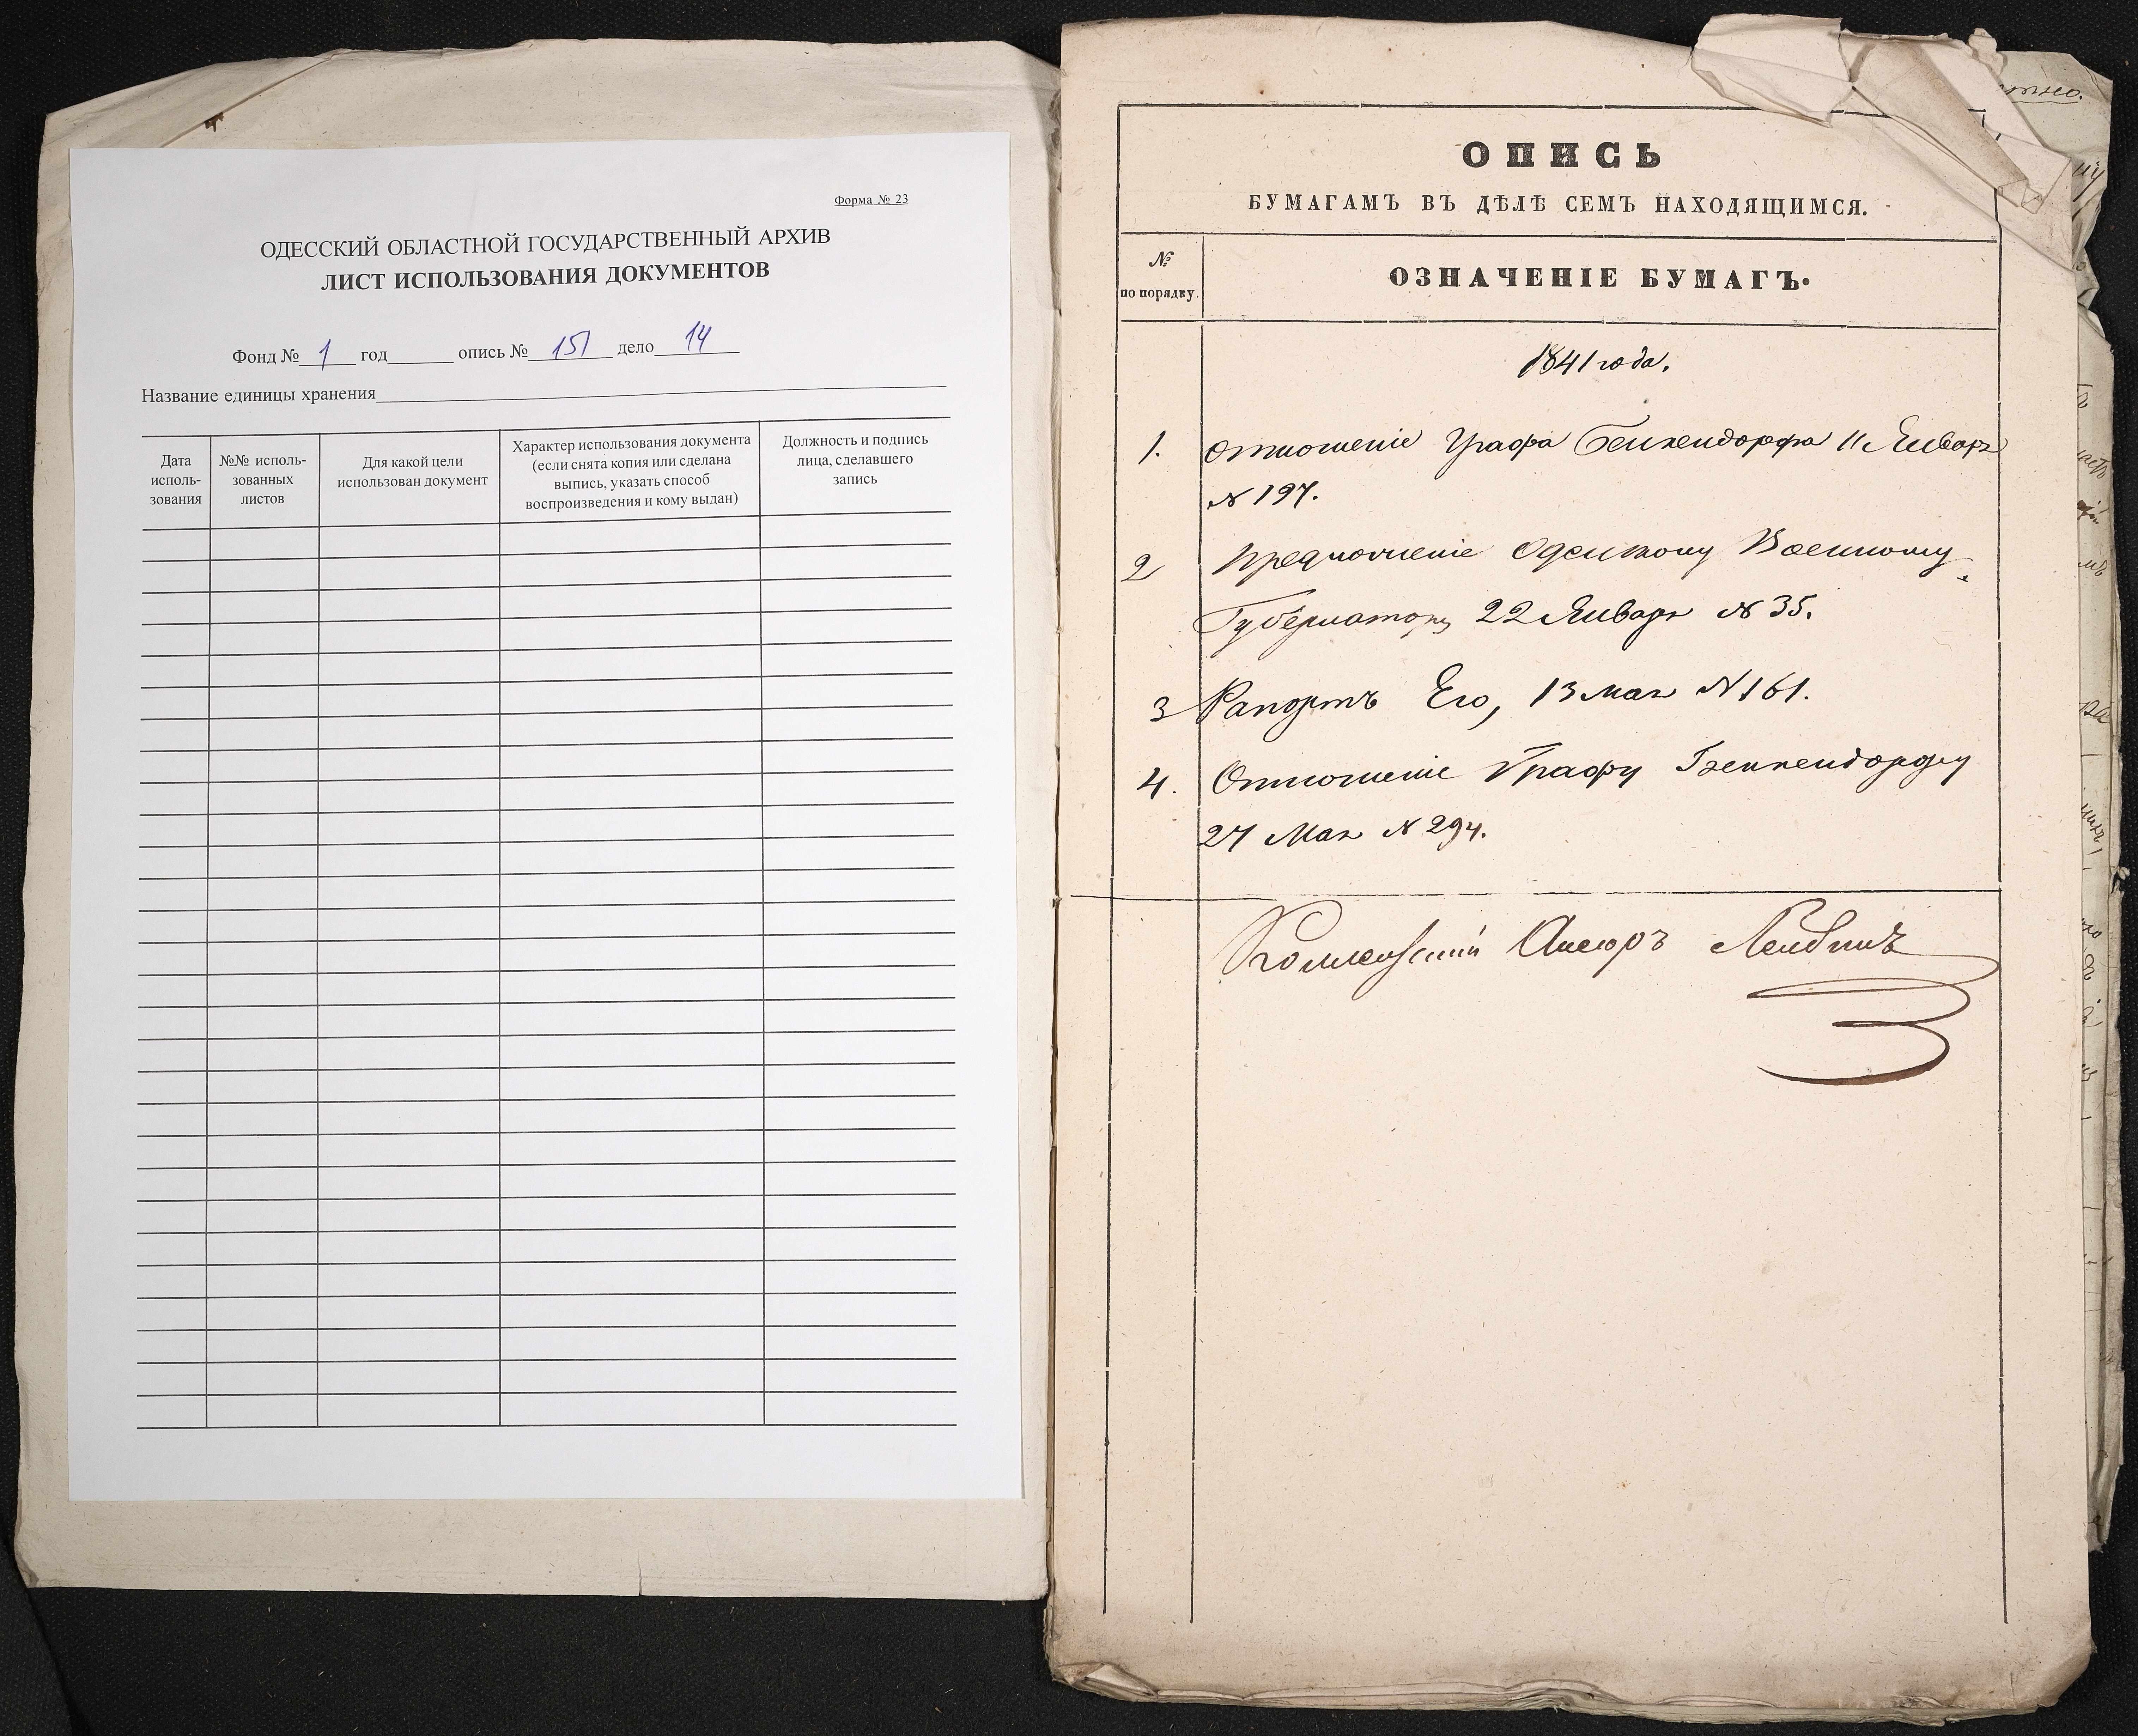 Форма № 23
ОДЕССКИЙ ОБЛАСТНОЙ ГОСУДАРСТВЕННЫЙ АРХИВ
ЛИСТ ИСПОЛЬЗОВАНИЯ ДОКУМЕНТОВ
Фонд № 1 год опись № 151 дело 14
Название единицы хранения
Дата
исполь-
зования
№№ исполь-
зованных
листов
Для какой цели
использован документ
Характер использования документа
(если снята копия или сделана
выпись, указать способ
воспроизведения и кому выдан)
Должность и подпись
лица, сделавшего
запись
ОПИСЬ
БУМАГАМЪ ВЪ ДѢЛѢ СЕМЪ НАХОДЯЩИМСЯ.
№
по порядку.
ОЗНАЧЕНІЕ БУМАГЪ.
1841 года.
1. Отношеніе Графа Бенкендорфа 11 Января
№ 197.
2 Предложеніе Одесскому Военному
Губернатору 22 Января № 35.
3 Рапортъ Его, 13 мая № 161.
4. Отношеніе Графу Бенкендорфу
27 Мая № 294.
Коллежскій Асесоръ